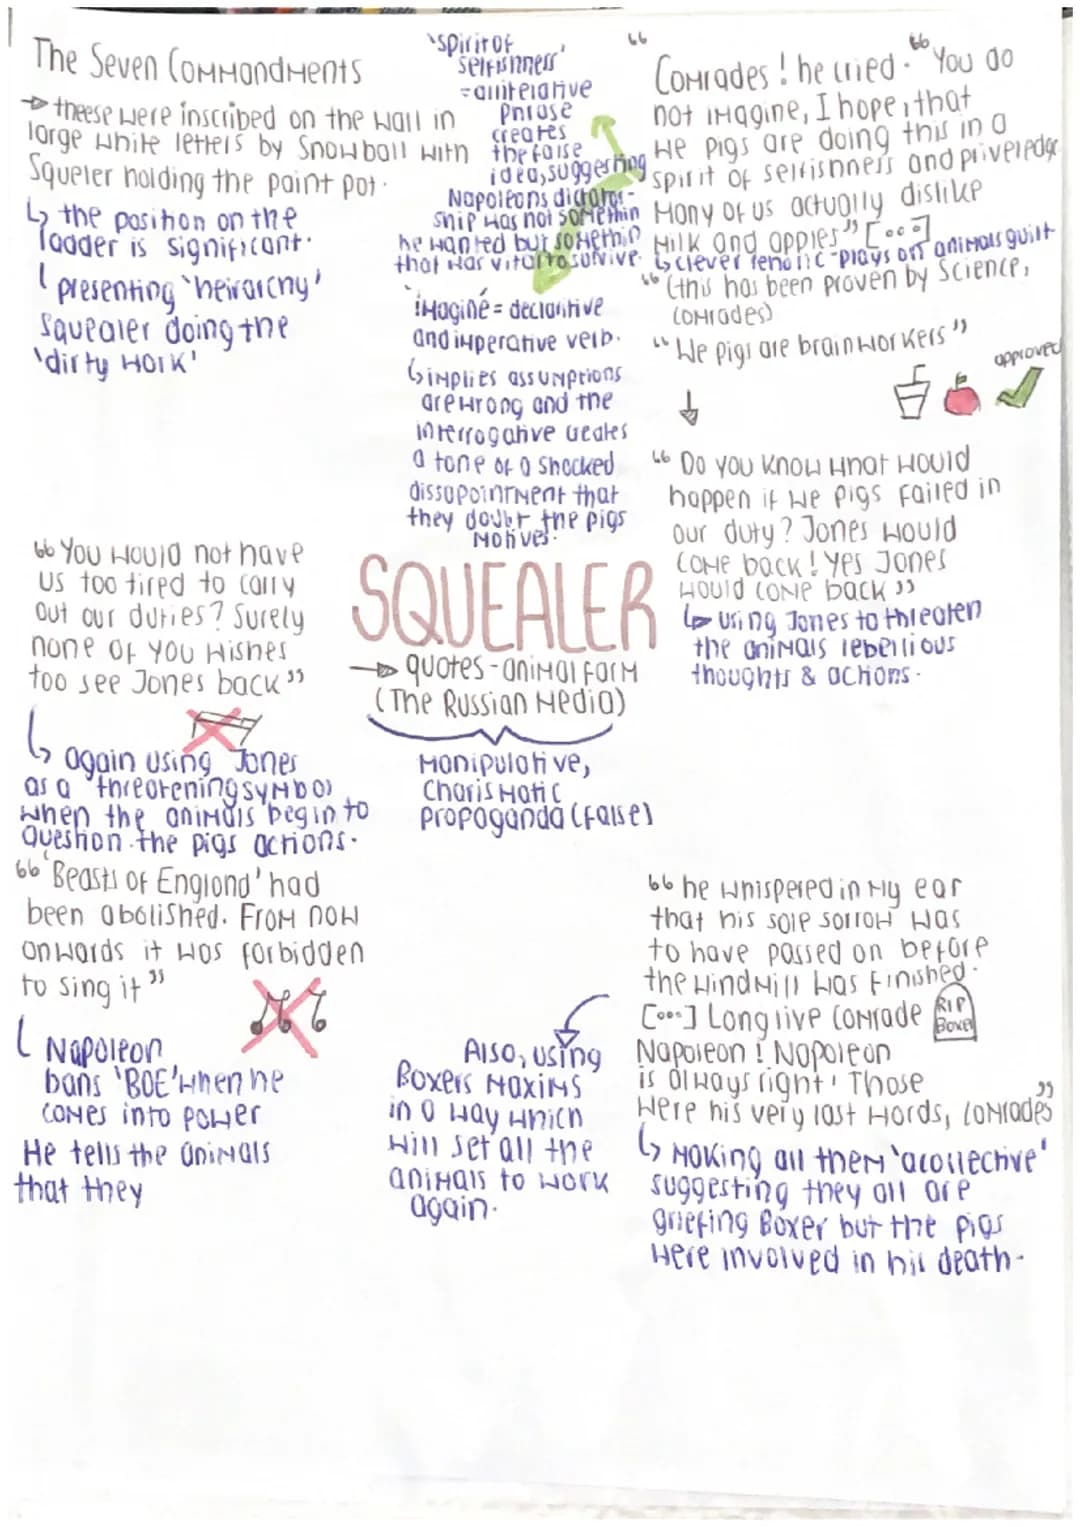 The Seven Commandments
→ theese were inscribed on the wall in
large white letters by Snowball with
Squeler holding the paint pot.
↳ the position on the
ladder is significant.
presenting 'heirarchy'
Squealer doing the
'dirty work'
'spirit of
selfishness'
= alliterative
phrase
creates
the false
idea, suggesting
Napoleons dictator-
ship was not somethin
he wanted but somethin
that was vital to survive.
'imagine' = declaritive
and imperative verb.
↳ implies assumptions
are wrong and the
interrogative creates
a tone of a shocked
dissapointment that
they doubt the pigs
motives.
“
Comrades! he cried. “You do
not imagine, I hope, that
we pigs are doing this in a
spirit of selfishness and priveledge
Many of us actually dislike
Milk and apples” [...]
↳ clever rhetoric - plays on animals guilt
“(this has been proven by Science,
comrades)
“We pigs are brainworkers”
approved
↓
“Do you know what would
happen if we pigs failed in
our duty? Jones would
come back! Yes Jones
would come back”
↳ using Jones to threaten
the animals rebellious
thoughts & actions.
“You would not have
us too tired to carry
out our duties? Surely
none of you wishes
too see Jones back”
↳ again using Jones
as a threatening symbol
when the animals begin to
question the pigs actions.
SQUEALER
→ quotes - animal farm
(The Russian Media)
Manipulative,
Charismatic
propaganda (false)
“'Beasts of England' had
been abolished. From now
onwards it was forbidden
to sing it”
Napoleon
bans 'BOE' when he
comes into power
He tells the animals
that they
“he whispered in my ear
that his sole sorrow was
to have passed on before
the windmill was finished.
[...] Long live comrade
RIP
Boxer
Napoleon! Napoleon
is always right! Those
were his very last words, comrades”
↳ Making all them 'a collective'
suggesting they all are
griefing Boxer but the pigs
were involved in his death.
Also, using
Boxers maxims
in a way which
will set all the
animals to work
again.